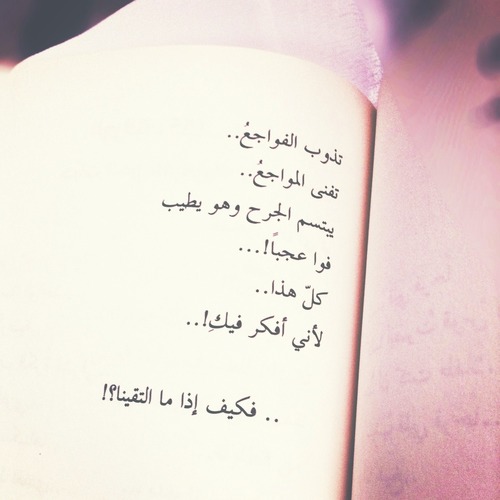 تذوب الفواجعُ..
تفنى المواجعُ..
يبتسم الجرح وهو يطيب
فوا عجباً!...
كلّ هذا..
لأني أفكر فيكِ!..
.. فكيف إذا ما التقينا؟!